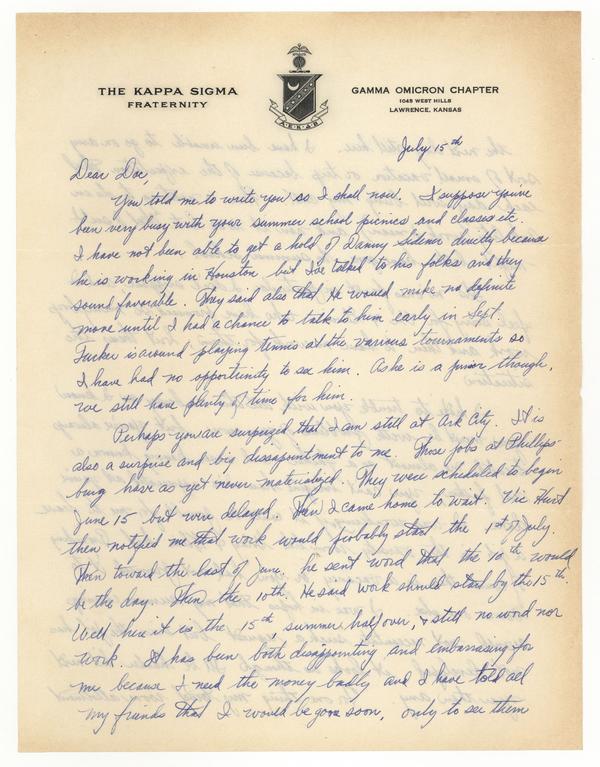 THE KAPPA SIGMA
FRATERNITY
GAMMA OMICRON CHAPTER
1045 WEST HILLS
LAWRENCE, KANSAS
July 15th
Dear Doc,
You told me to write you so I shall now. I suppose you've
been very busy with your summer school picnics and classes etc.
I have not been able to get a hold of Danny Sidener directly because
he is working in Houston but I've talked to his folks and they
sound favorable. They said also that He would make no definite
move until I had a chance to talk to him early in Sept.
Tucker is around playing tennis at the various tournaments so
I have had no opportunity to see him. As he is a junior though,
we still have plenty of time for him.
Perhaps you are surprized that I am still at Ark City. It is
also a surprise and big dissapointment to me. Those jobs at Phillips-
burg have as yet never materialized. They were scheduled to begin
June 15 but were delayed. Then I came home to wait. Vic Hurt
then notified me that work would probably start the 1st of July.
Then toward the last of June. he sent word that the 10th would
be the day. Then the 10th. He said work should start by the 15th.
Well here it is the 15th, summer half over, & still no word nor
work. It has been both disappointing and embarrasing for
me because I need the money badly and I have told all
my friends that I would be gone soon, only to see them